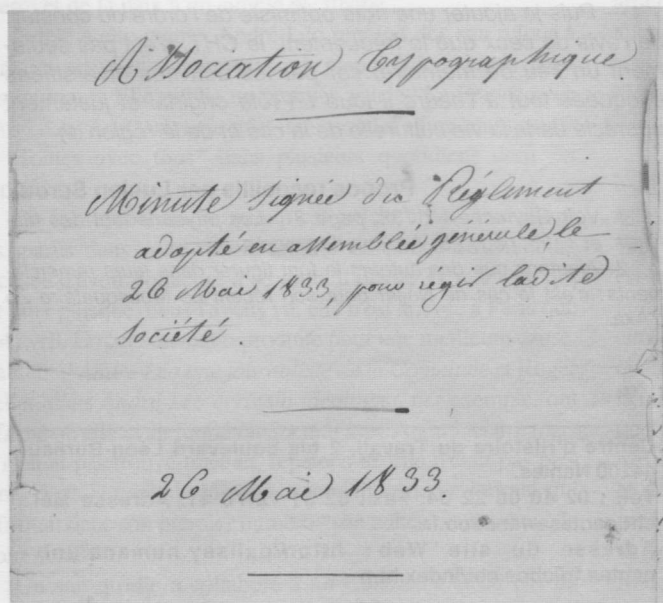 Association Typographique.
Minute signée du Réglement
adopté en assemblée générale, le
26 Mai 1833, pour régir ladite
Société.
26 Mai 1833.